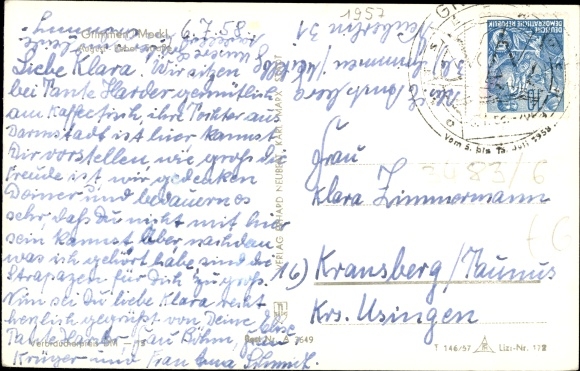 1957
6.7.58
Grimmen, Meckl.
Liebe Klara. Wir sitzen
bei Tante Harder gemütlich
am Kaffeetisch, ihre Tochter aus
Darmstadt ist hier kannst
Dir vorstellen wie groß die
Freude ist wir gedenken
Deiner und bedauern es
sehr, daß Du nicht mit hier
sein kannst. Aber nachdem
was ich gehört habe sind die
Strapazen für Dich zu groß.
Nun sei Du liebe Klara recht
herzlich gegrüßt von Deine Else
Tante Harder, Frau Böhm, Frau
Krüger und Frau Schmidt.
Verbraucherpreis DM
VERLAG ERHARD NEUBERT KARL-MARX-STADT
Best.-Nr. A 3649
DEUTSCHE DEMOKRATISCHE REPUBLIK
10
vom 5. bis 13. Juli 1958
3083/6
Frau
Klara Zimmermann
16) Kransberg/Taunus
Krs. Usingen
T 146/57 Lizr-Nr. 172